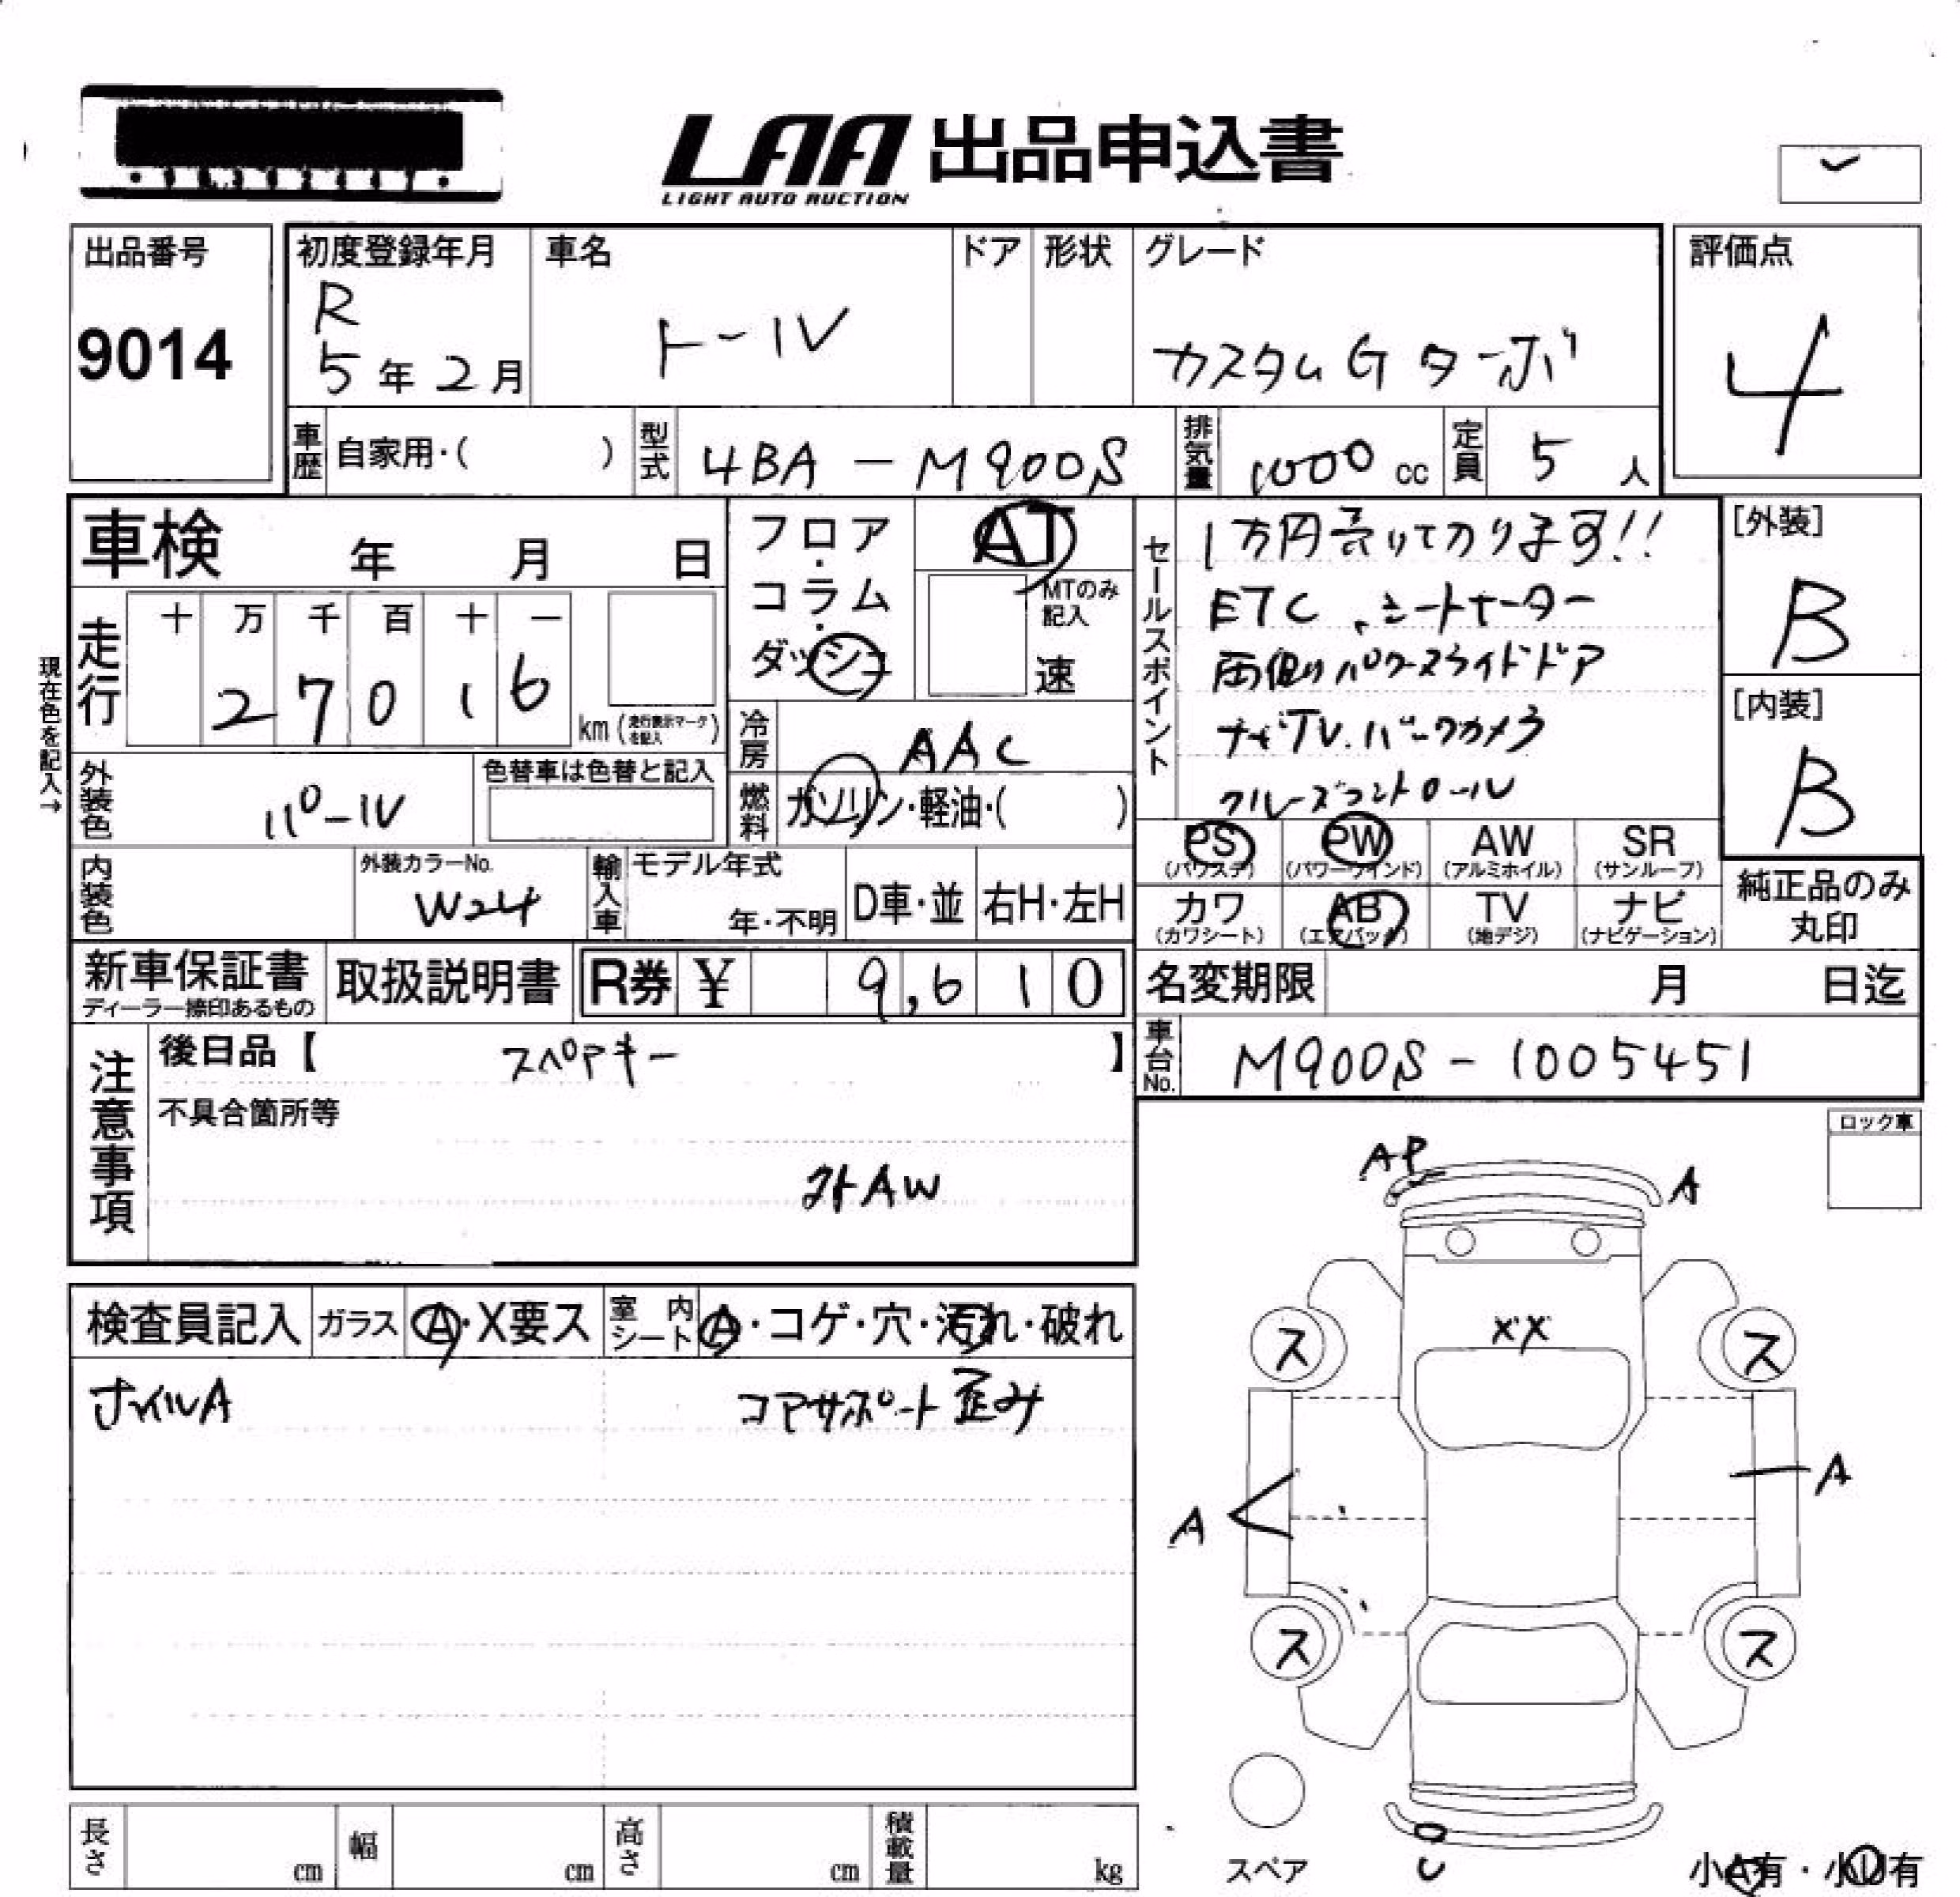 LAA 出品申込書
LIGHT AUTO AUCTION
出品番号
9014
初度登録年月
R
5年2月
車名
トール
ドア
形状
グレード
カスタムG ターボ
評価点
4
車歴
自家用・( )
型式
4BA - M900S
排気量
1000 cc
定員
5 人
車検 年 月 日
走行
十 万 千 百 十 一
2 7 0 1 6
km (走行表示マークを記入)
現在色を記入→
外装色
パール
色替車は色替と記入
内装色
外装カラーNo.
W24
輸入車
モデル年式
年・不明
D車・並
右H・左H
フロア・コラム・ダッシュ
AT
MTのみ記入
速
冷房
AAC
燃料
ガソリン・軽油・( )
セールスポイント
1万円売り切ります!!
ETC、シートヒーター
両側パワースライドドア
ナビTV.バックカメラ
クルーズコントロール
[外装]
B
[内装]
B
PS
(パワステ)
PW
(パワーウインド)
AW
(アルミホイル)
SR
(サンルーフ)
カワ
(カワシート)
AB
(エアバック)
TV
(地デジ)
ナビ
(ナビゲーション)
純正品のみ
丸印
新車保証書
ディーラー捺印あるもの
取扱説明書
R券 ¥ 9,610
名変期限 月 日迄
車台No.
M900S - 1005451
注意事項
後日品【 スペアキー 】
不具合箇所等
外AW
ロック車
検査員記入
ガラス
A・X要ス
室内シート
A・コゲ・穴・汚れ・破れ
ホイルA
コアサポート歪み
AP
A
XX
ス
ス
A
A
ス
ス
スペア
U
小A有・小U有
長さ
cm
幅
cm
高さ
cm
積載量
kg